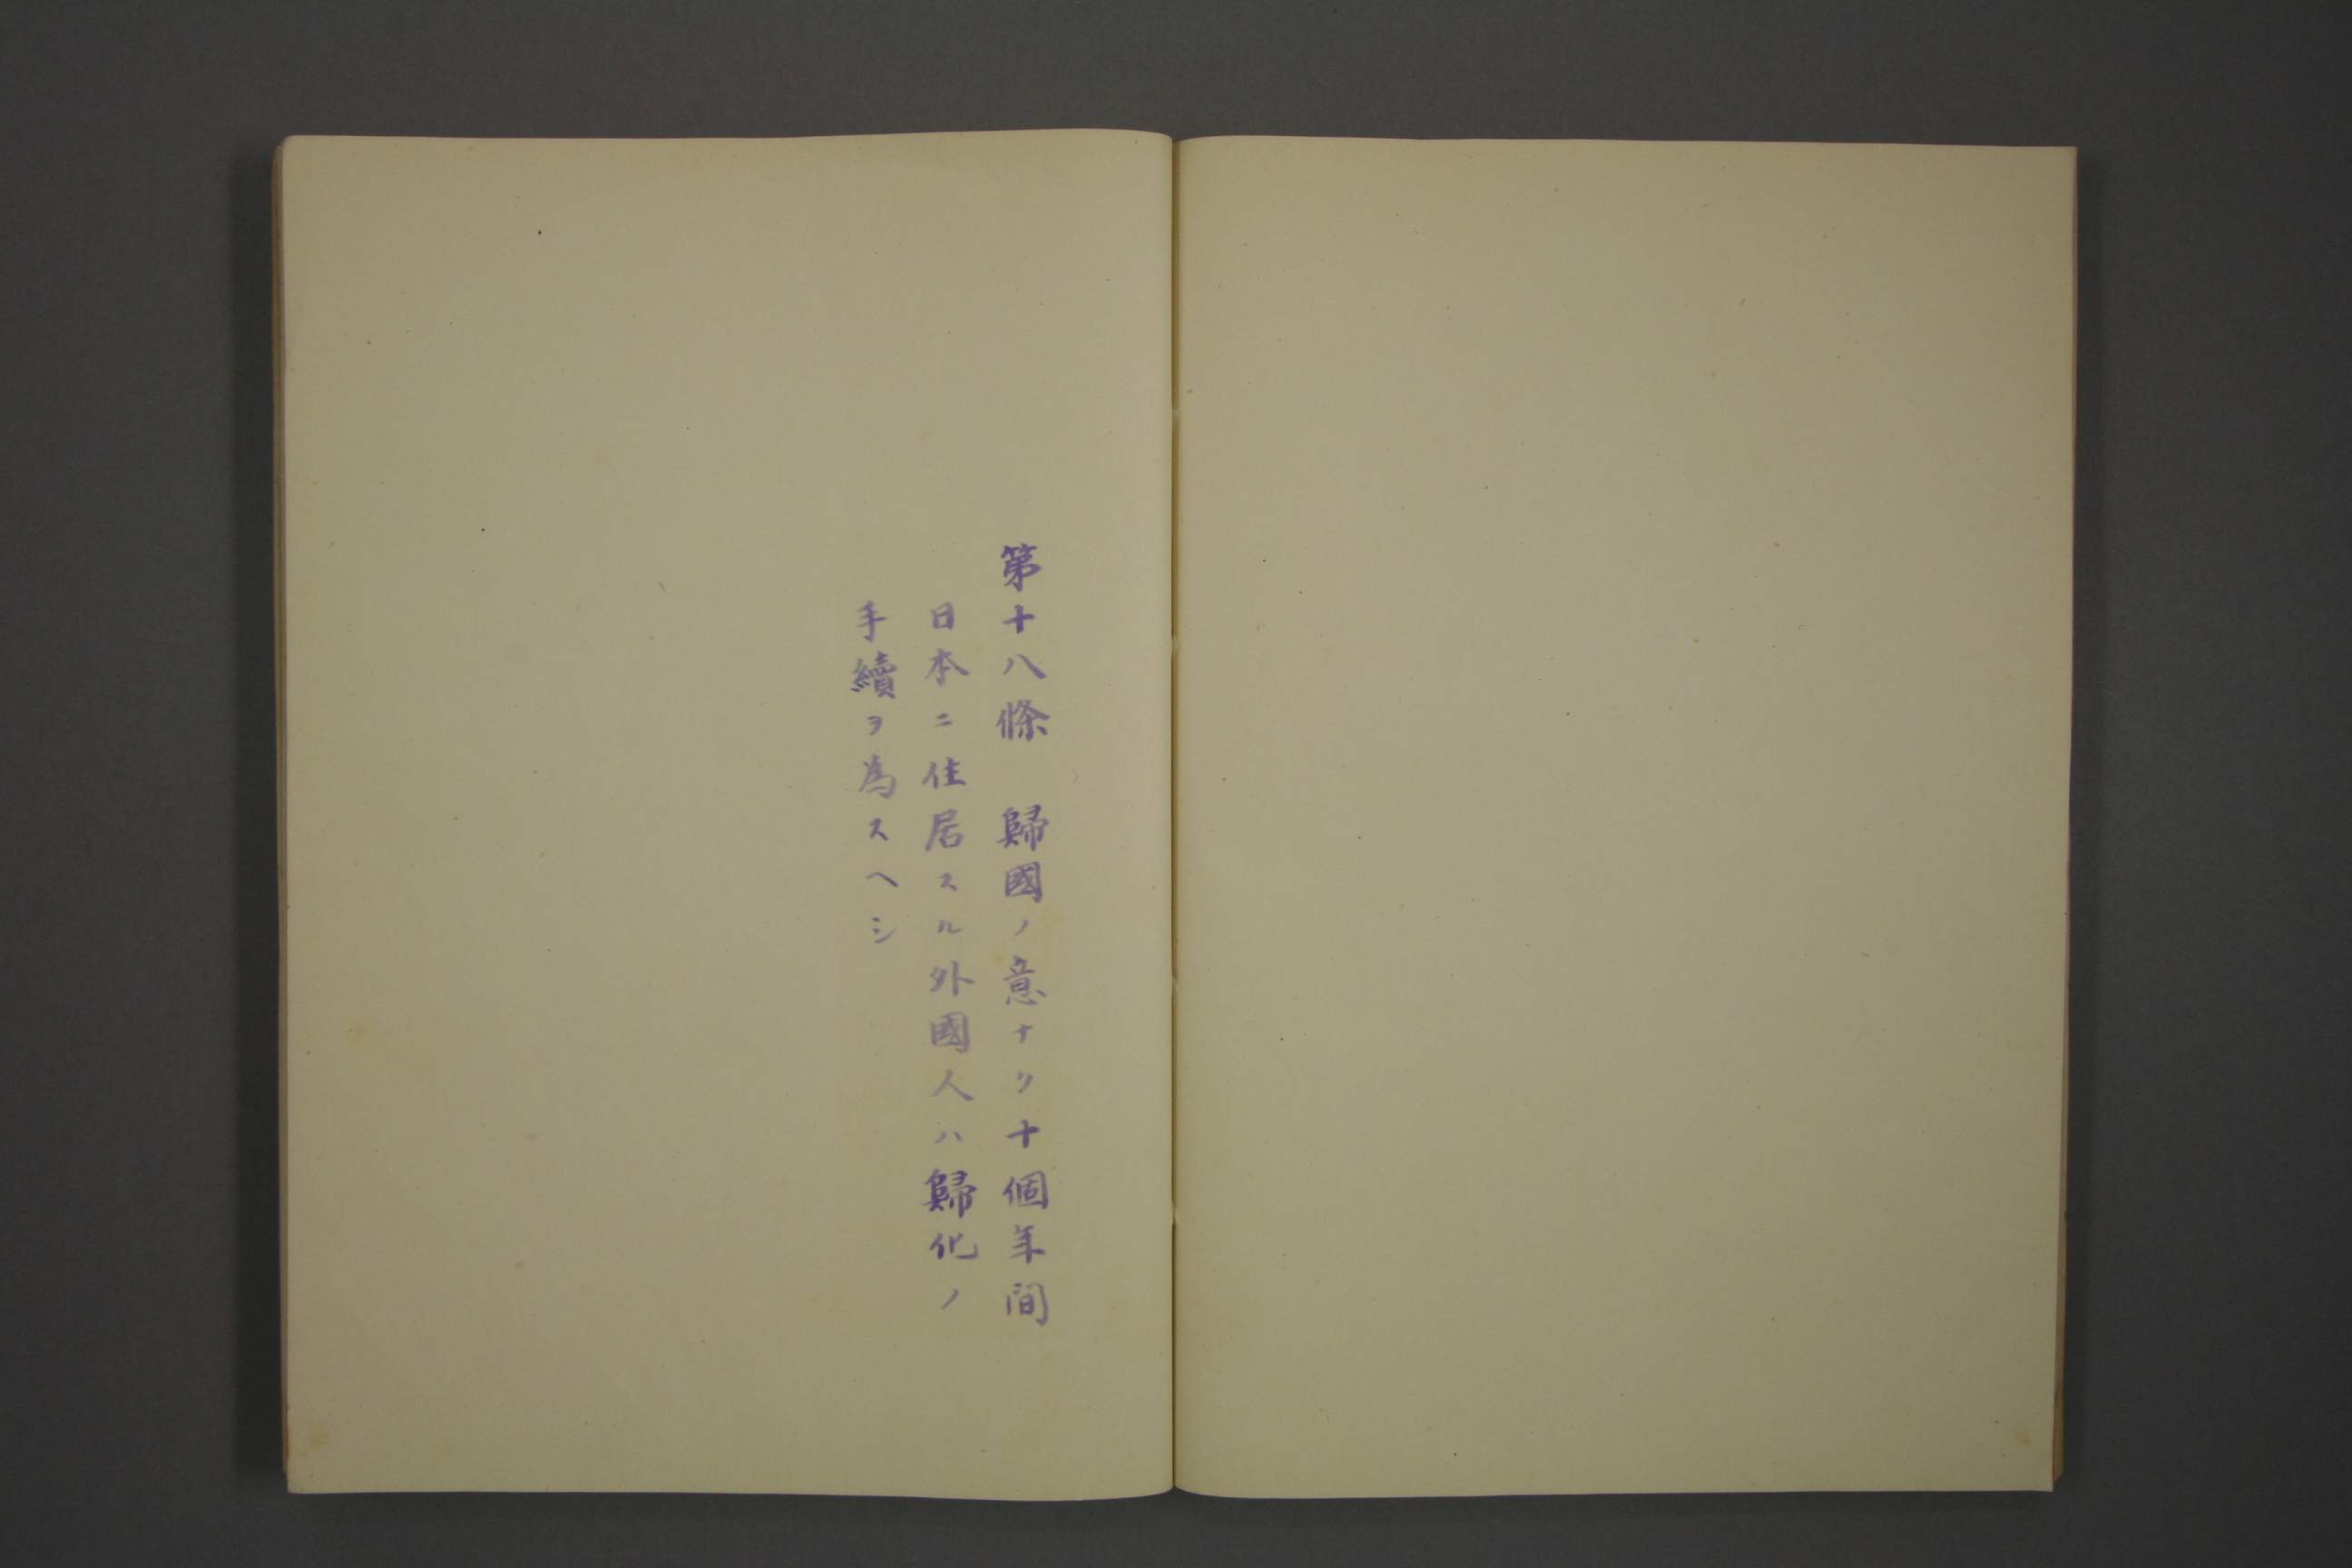 第十八條　歸國ノ意ナク十個年間
日本ニ住居スル外國人ハ歸化ノ
手續ヲ為スヘシ